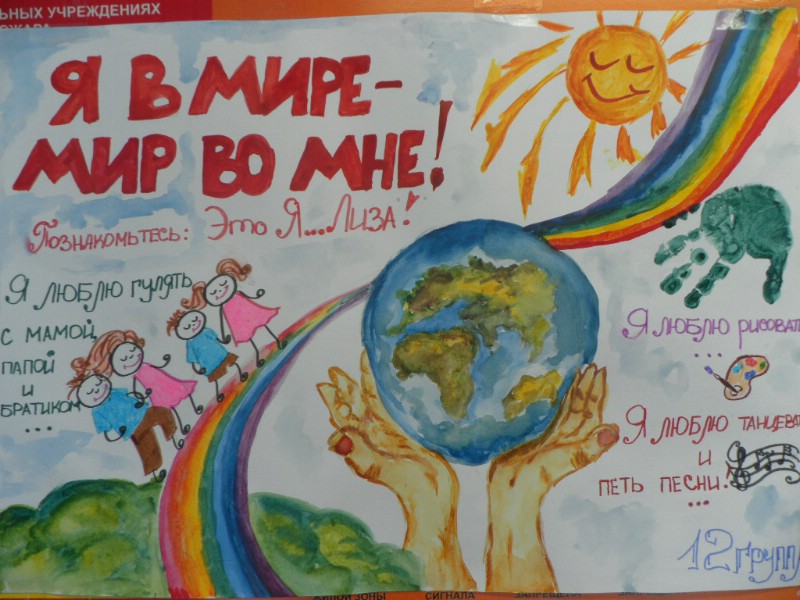 ЬНЫХ УЧРЕЖДЕНИЯХ
Я В МИРЕ-
МИР ВО МНЕ!
Познакомьтесь: Это Я...Лиза!
Я ЛЮБЛЮ ГУЛЯТЬ
С МАМОЙ,
ПАПОЙ
И
БРАТИКОМ
...
Я ЛЮБЛЮ РИСОВАТ
...
Я ЛЮБЛЮ ТАНЦЕВАТ
И
ПЕТЬ ПЕСНИ!
...
12 групп
ЗОНЫ СИГНАЛА